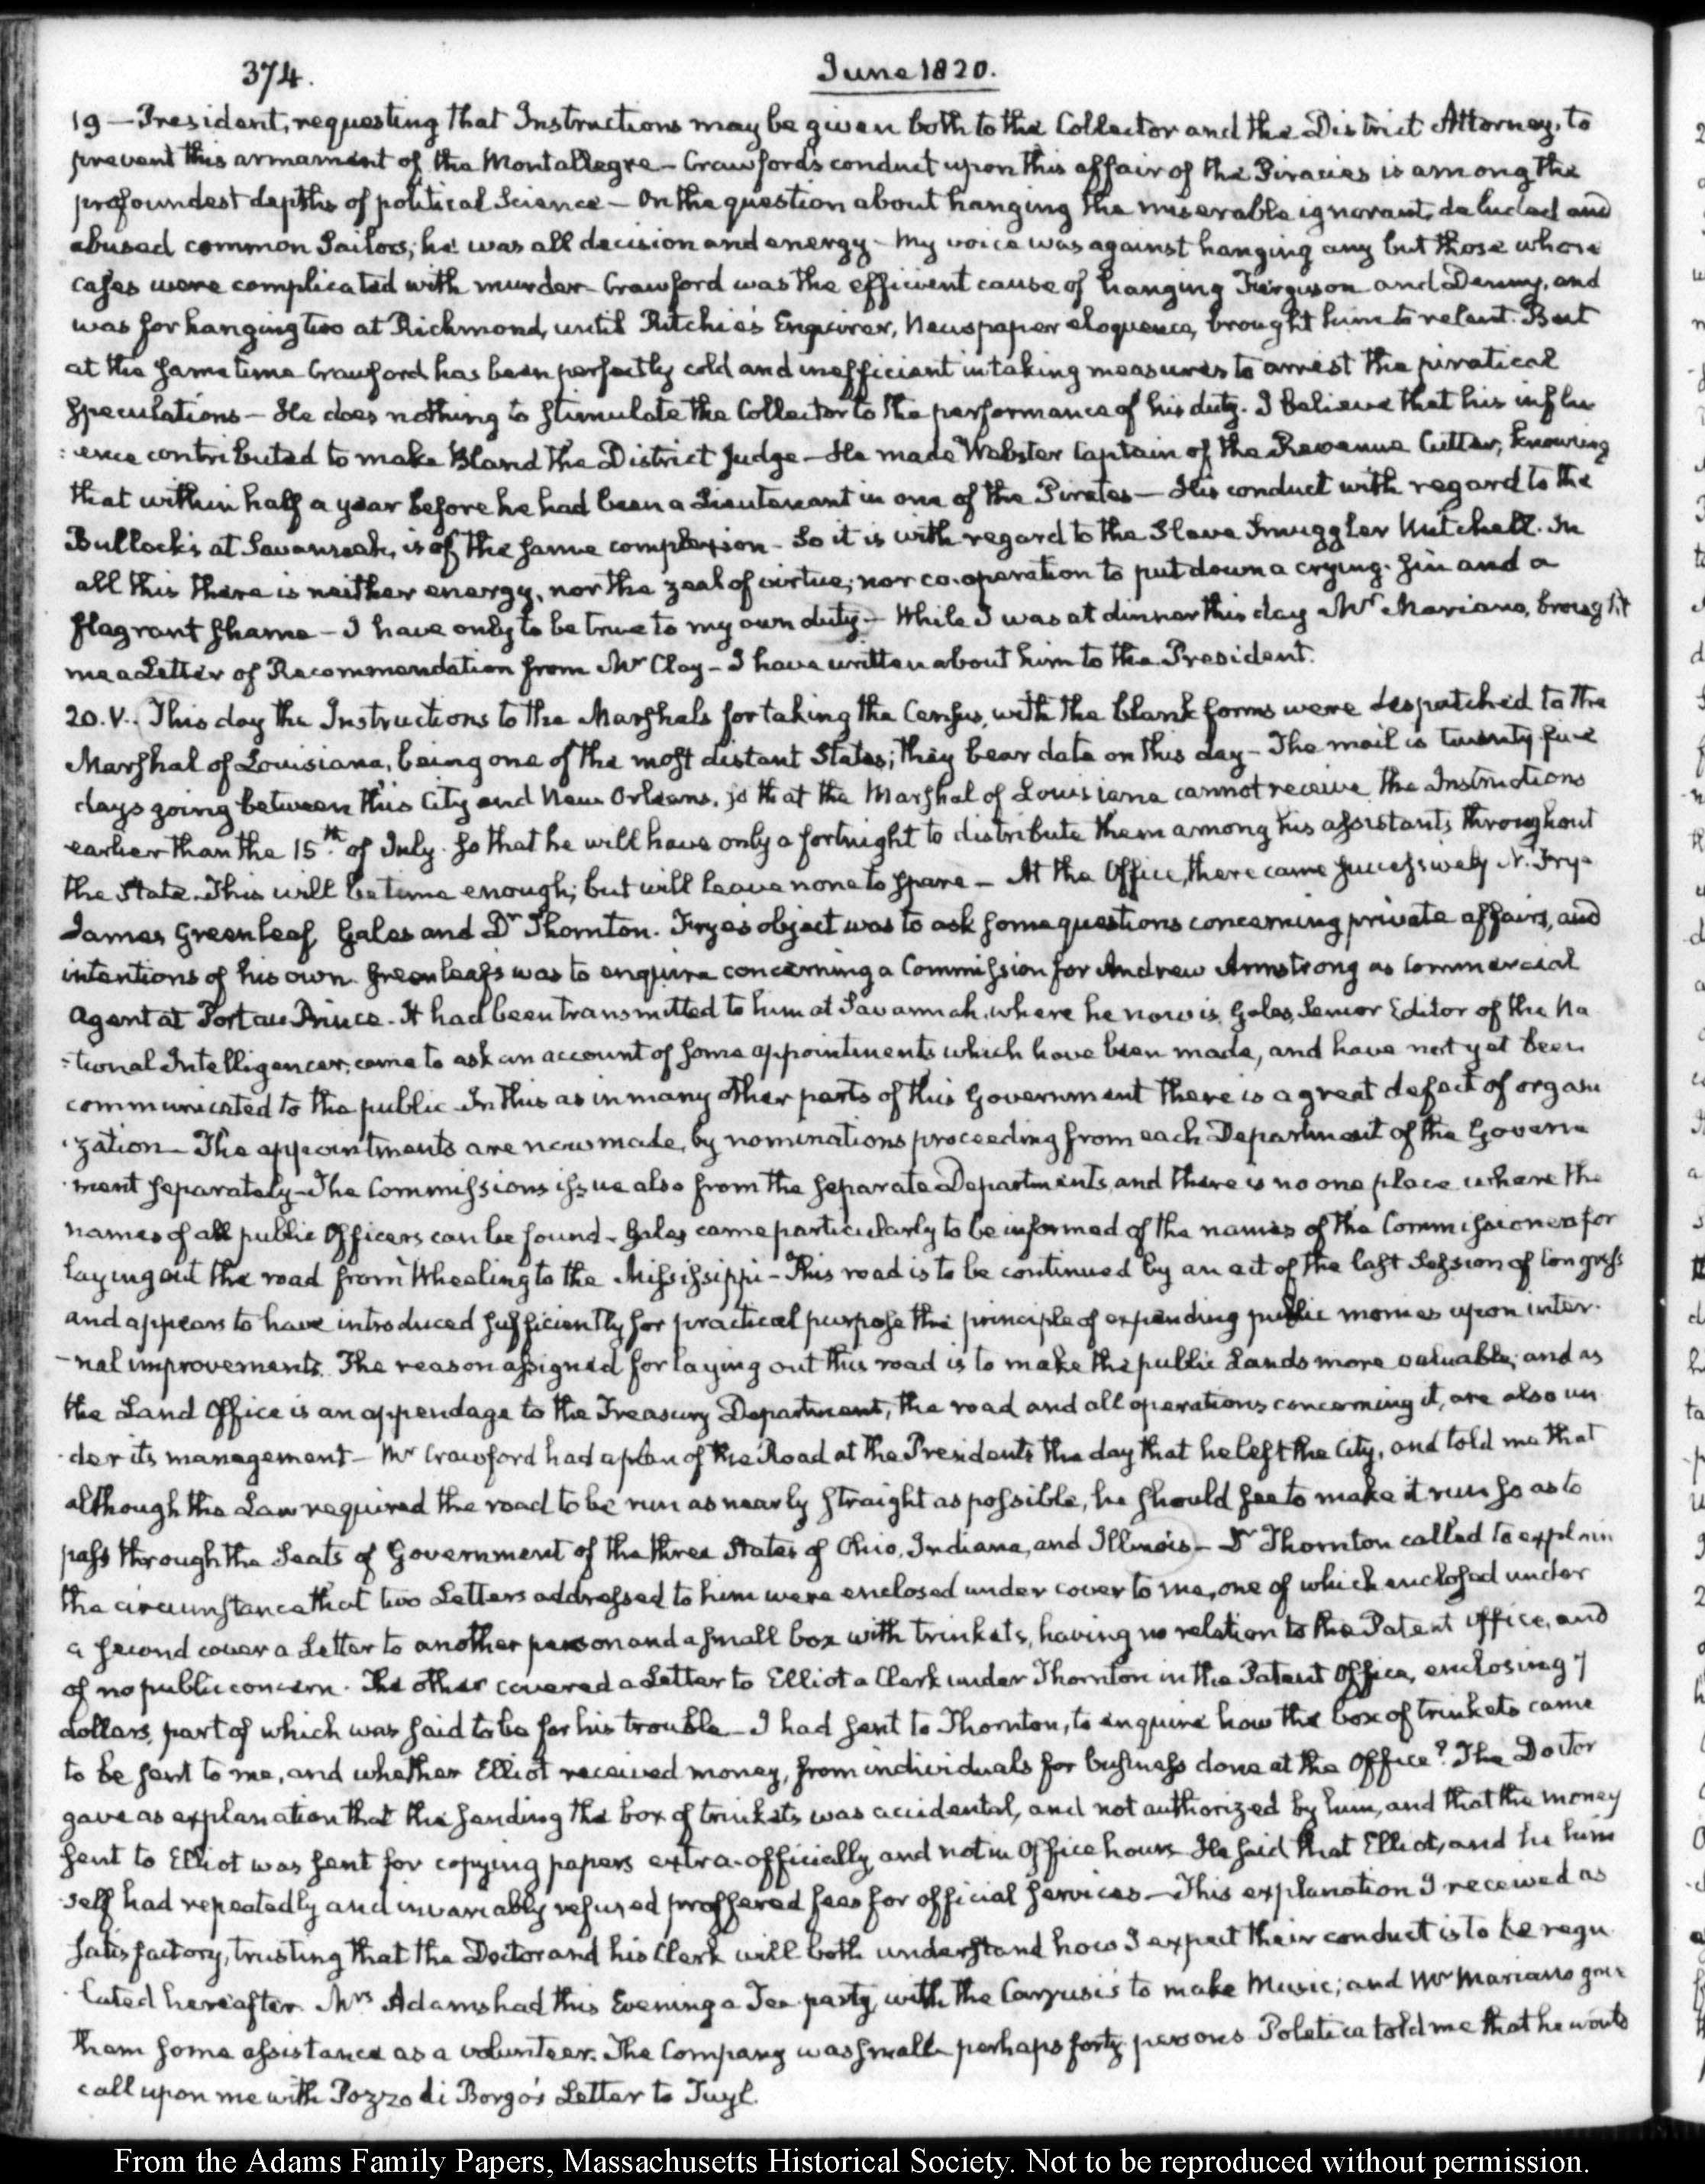 374.
June 1820.
19 — President, requesting that Instructions may be given both to the Collector and the District Attorney, to
prevent this armament of the Montallegre — Crawford's conduct upon this affair of the Piracies is among the
profoundest depths of political Science — On the question about hanging the miserable ignorant, deluded and
abused common Sailors, he was all decision and energy — My voice was against hanging any but those whose
cases were complicated with murder — Crawford was the efficient cause of hanging Ferguson and Denny, and
was for hanging two at Richmond, until Ritchie's Enquirer, Newspaper eloquence, brought him to relent. But
at the same time Crawford has been perfectly cold and inefficient in taking measures to arrest the piratical
speculations — He does nothing to stimulate the Collector to the performance of his duty. I believe that his influ
:ence contributed to make Bland the District Judge — He made Webster Captain of the Revenue Cutter, knowing
that within half a year before he had been a Lieutenant in one of the Pirates — His conduct with regard to the
Bullock's at Savannah, is of the same complexion — So it is with regard to the Slave Smuggler Mitchell. In
all this there is neither energy, nor the zeal of virtue, nor co-operation to put down a crying sin and a
flagrant shame — I have only to be true to my own duty — While I was at dinner this day Mr Mariano, brought
me a Letter of Recommendation from Mr Clay — I have written about him to the President.
20. V. This day the Instructions to the Marshals for taking the Census, with the blank forms were despatched to the
Marshal of Louisiana, being one of the most distant States; they bear date on this day — The mail is twenty five
days going between this City and New Orleans, so that the Marshal of Louisiana cannot receive the Instructions
earlier than the 15th of July. So that he will have only a fortnight to distribute them among his assistants throughout
the State. This will be time enough; but will leave none to spare — At the Office, there came successively N. Frye
James Greenleaf, Gales and Dr Thornton. Frye's object was to ask some questions concerning private affairs, and
intentions of his own. Greenleaf's was to enquire concerning a Commission for Andrew Armstrong as Commercial
Agent at Port au Prince. It had been transmitted to him at Savannah, where he now is. Gales, Senior Editor of the Na
:tional Intelligencer, came to ask an account of some appointments which have been made, and have not yet been
communicated to the public. In this as in many other parts of this Government there is a great defect of organi
:zation — The appointments are now made, by nominations proceeding from each Department of the Govern
:ment separately — The Commissions issue also from the separate Departments, and there is no one place where the
names of all public Officers can be found — Gales came particularly to be informed of the names of the Commissioners for
laying out the road from Wheeling to the Mississippi — This road is to be continued by an act of the last Session of Congress
and appears to have introduced sufficiently for practical purpose the principle of expending public monies upon inter-
-nal improvements. The reason assigned for laying out this road is to make the public Lands more valuable; and as
the Land Office is an appendage to the Treasury Department, the road and all operations concerning it, are also un
:der its management — Mr Crawford had a plan of the Road at the President's the day that he left the City, and told me that
although the Law required the road to be run as nearly straight as possible, he should see to make it run so as to
pass through the Seats of Government of the three States of Ohio, Indiana, and Illinois — Dr Thornton called to explain
the circumstance that two Letters addressed to him were enclosed under cover to me, one of which enclosed under
a second cover a Letter to another person and a small box with trinkets, having no relation to the Patent Office, and
of no public concern. The other covered a Letter to Elliot a Clerk under Thornton in the Patent Office, enclosing 7
dollars, part of which was said to be for his trouble — I had sent to Thornton, to enquire how the box of trinkets came
to be sent to me, and whether Elliot received money, from individuals for business done at the Office? The Doctor
gave as explanation that the sending the box of trinkets was accidental, and not authorized by him, and that the money
sent to Elliot was sent for copying papers extra-officially, and not in Office hours. He said that Elliot, and he him
:self had repeatedly and invariably refused proffered fees for official services — This explanation I received as
satisfactory, trusting that the Doctor and his Clerk will both understand how I expect their conduct is to be regu
:lated hereafter. Mrs Adams had this Evening a Tea party, with the Carusi's to make Music; and Mr Mariano gave
them some assistance as a volunteer. The Company was small — perhaps forty persons. Poletica told me that he would
call upon me with Pozzo di Borgo's Letter to Tuyl.
From the Adams Family Papers, Massachusetts Historical Society. Not to be reproduced without permission.